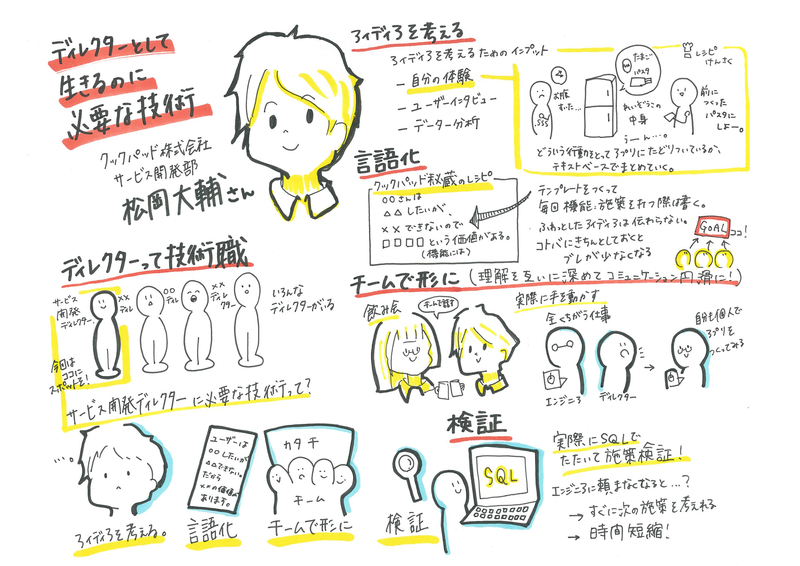 ディレクターとして
生きるのに
必要な技術
クックパッド株式会社
サービス開発部
松岡大輔さん
アイディアを考える
アイディアを考えるためのインプット
– 自分の体験
– ユーザーインタビュー
– データー分析
お腹
すいた…
たまご
パスタ
れいぞうこの
中身
レシピ
けんさく
前に
つくった
パスタに
しよー。
うーん…。
どういう行動をとってアプリにたどりついているか、
テキストベースでまとめていく。
言語化
クックパッド秘蔵のレシピ
○○さんは
△△したいが、
××できないので
□□□□という価値がある。
(機能には)
テンプレートをつくって
毎回機能、施策を打つ際は書く。
ふわっとしたアイディアは伝わらない。
コトバにきちんとしておくと
ブレが少なくなる
GOAL
ココ!
ディレクターって技術職
サービス
開発
ディレクター
××
ディレ
○○
ディレ
××
ディレ
クター
いろんな
ディレクターがいる
今回は
ココに
スポットを!
サービス開発ディレクターに必要な技術って?
アイディアを考える。
ユーザーは
○○したいが
△△できない。
だから
××の価値が
あります。
言語化
カタチ
チーム
チームで形に
チームで形に(理解を互いに深めてコミュニケーション円滑に!)
飲み会
チームで話す
実際に手を動かす
全くちがう仕事
エンジニア
ディレクター
自らも個人で
アプリを
つくってみる
検証
SQL
検証
実際にSQLで
たたいて施策検証!
エンジニアに頼まなくなると…?
→ すぐに次の施策を考えれる
→ 時間短縮!